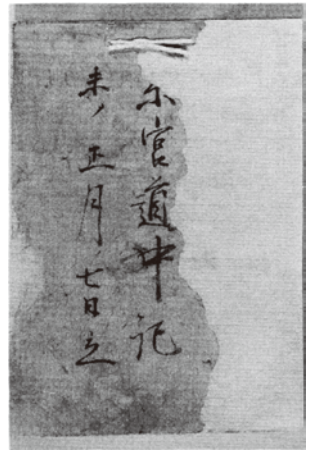 参宮道中記
未ノ正月七日立